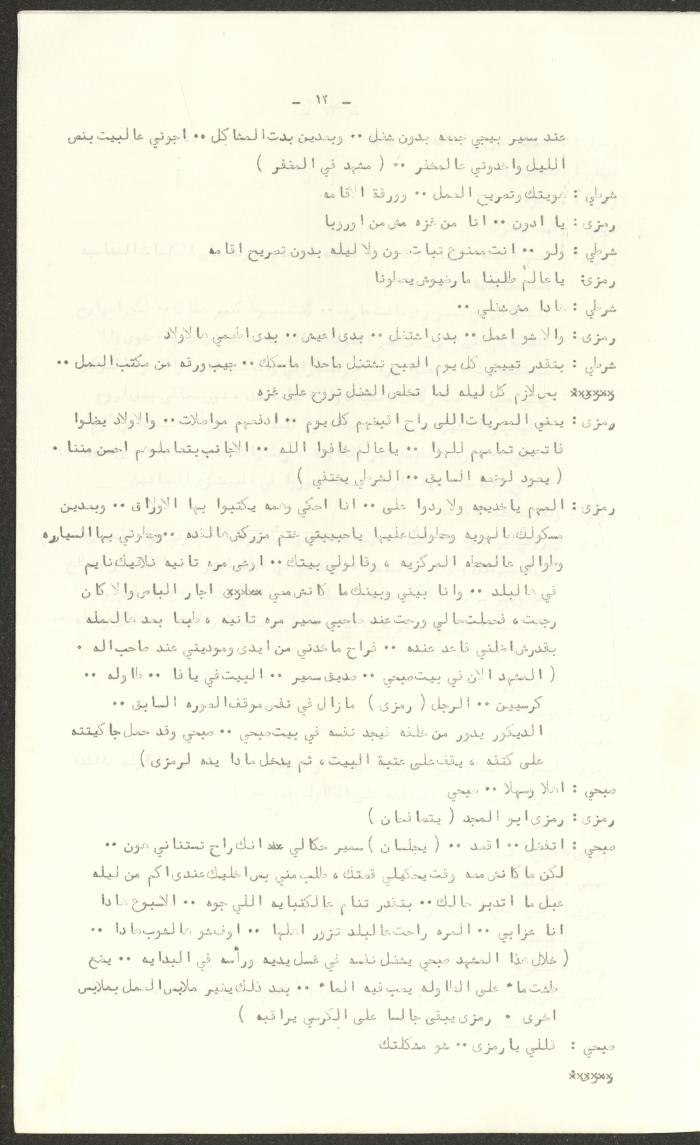 - ١٢ -
عند سمير بيجي جمعه بدون شغل .. وبعدين بدت المشاكل .. اجوني عالبيت بنص
الليل واخدوني عالمخفر .. ( مشهد في المخفر )
شرطي : هويتك وتصريح العمل .. وورقة الاقامه
رمزى : يا ادون .. انا من غزه مش من اوروبا
شرطي : ولو .. انت ممنوع تبات هون ولا ليله بدون تصريح اقامه
رمزى: ياعالم طلبنا مارضيوش يعطونا
شرطي : هادا مش شغلي ..
رمزى : والا شو اعمل .. بدى اشتغل .. بدى اعيش .. بدى اطعمي هالاولاد
شرطي : بتقدر تييجي كل يوم الصبح تشتغل ماحدا ماسكك .. جيب ورقه من مكتب العمل ..
xxxxxx بس لازم كل ليله لما تخلص الشغل تروح على غزه
رمزى : يعني المصريات اللي راح اقبضهم كل يوم .. ادفعهم مواصلات .. والاولاد يظلوا
فاتحين تمامهم للهوا .. ياعالم خافوا الله .. الاجانب بتعاملوهم احسن مننا .
( يعود لوضعه السابق .. الشرطي يختفي )
رمزى : المهم ياخديجه ولا ردوا علي .. انا احكي وهمه يكتبوا بها الاوراق .. وبعدين
مسكولك هالهويه وحطولك عليها ياحبيبتي ختم مزركش هالقده .. وحطوني بها السياره
وطوالي عالمحطه المركزيه ، وقالولي بيتك .. اوعى مره تانيه نلاقيك نايم
في هالبلد .. وانا بيني وبينك ما كانش معي xxxxx اجار الباص والا كان
رجعت ، فحملت حالي ورحت عند صاحبي سمير مره تانيه ، طبعا بعد هالعمله
بقدرش اخلني قاعد عنده .. فراح ماخدني من ايدى وموديني عند صاحب اله .
( المشهد الان في بيت صبحي .. صديق سمير .. البيت في يافا .. طاوله ..
كرسيين .. الرجل ( رمزى ) مازال في نفس موقف الصوره السابق ..
الديكور يدور من خلفه فيجد نفسه في بيت صبحي .. صبحي وقد حمل جاكيتته
على كتفه ، يقف على عتبة البيت ، ثم يدخل مادا يده لرمزى )
صبحي : اهلا وسهلا .. صبحي
رمزى : رمزى ابو المجد ( يتصافحان )
صبحي : اتفضل .. اقعد .. ( يجلسان ) سمير حكالي انك راح تستناني هون ..
لكن ما كانش معه وقت يحكيلي قصتك ، طلب مني بس اخليك عندى اكم من ليله
عبل ما اتدبر حالك .. بتقدر تنام عالكنبايه اللي جوه .. الاسبوع هادا
انا عزابي .. المره راحت عالبلد تزور اهلها .. اوف شو هالشوب هادا ..
( خلال هذا المشهد صبحي يشغل نفسه في غسل يديه ورأسه في البدايه .. يضع
طشت ماء على الطاوله يصب فيه الماء .. بعد ذلك يغير ملابس العمل بملابس
اخرى . رمزى يبقى جالسا على الكرسي يراقبه )
صبحي : قللي يا رمزى .. شو مشكلتك
xxxxxx